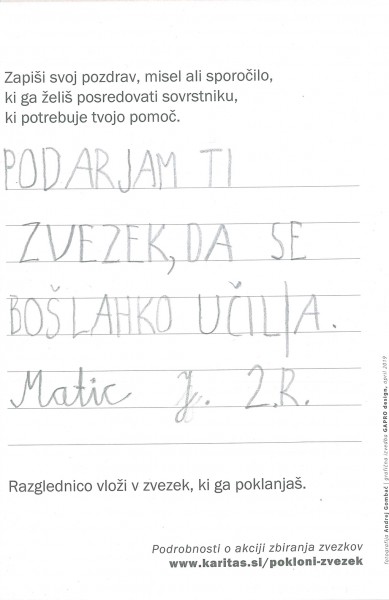 Zapiši svoj pozdrav, misel ali sporočilo,
ki ga želiš posredovati sovrstniku,
ki potrebuje tvojo pomoč.
PODARJAM TI
ZVEZEK, DA SE
BOŠ LAHKO UČIL/A.
Matic J. 2.R.
Razglednico vloži v zvezek, ki ga poklanjaš.
Podrobnosti o akciji zbiranja zvezkov
www.karitas.si/pokloni-zvezek
fotografija Andrej Gomboč | grafična izvedba GAPRO design, april 2019